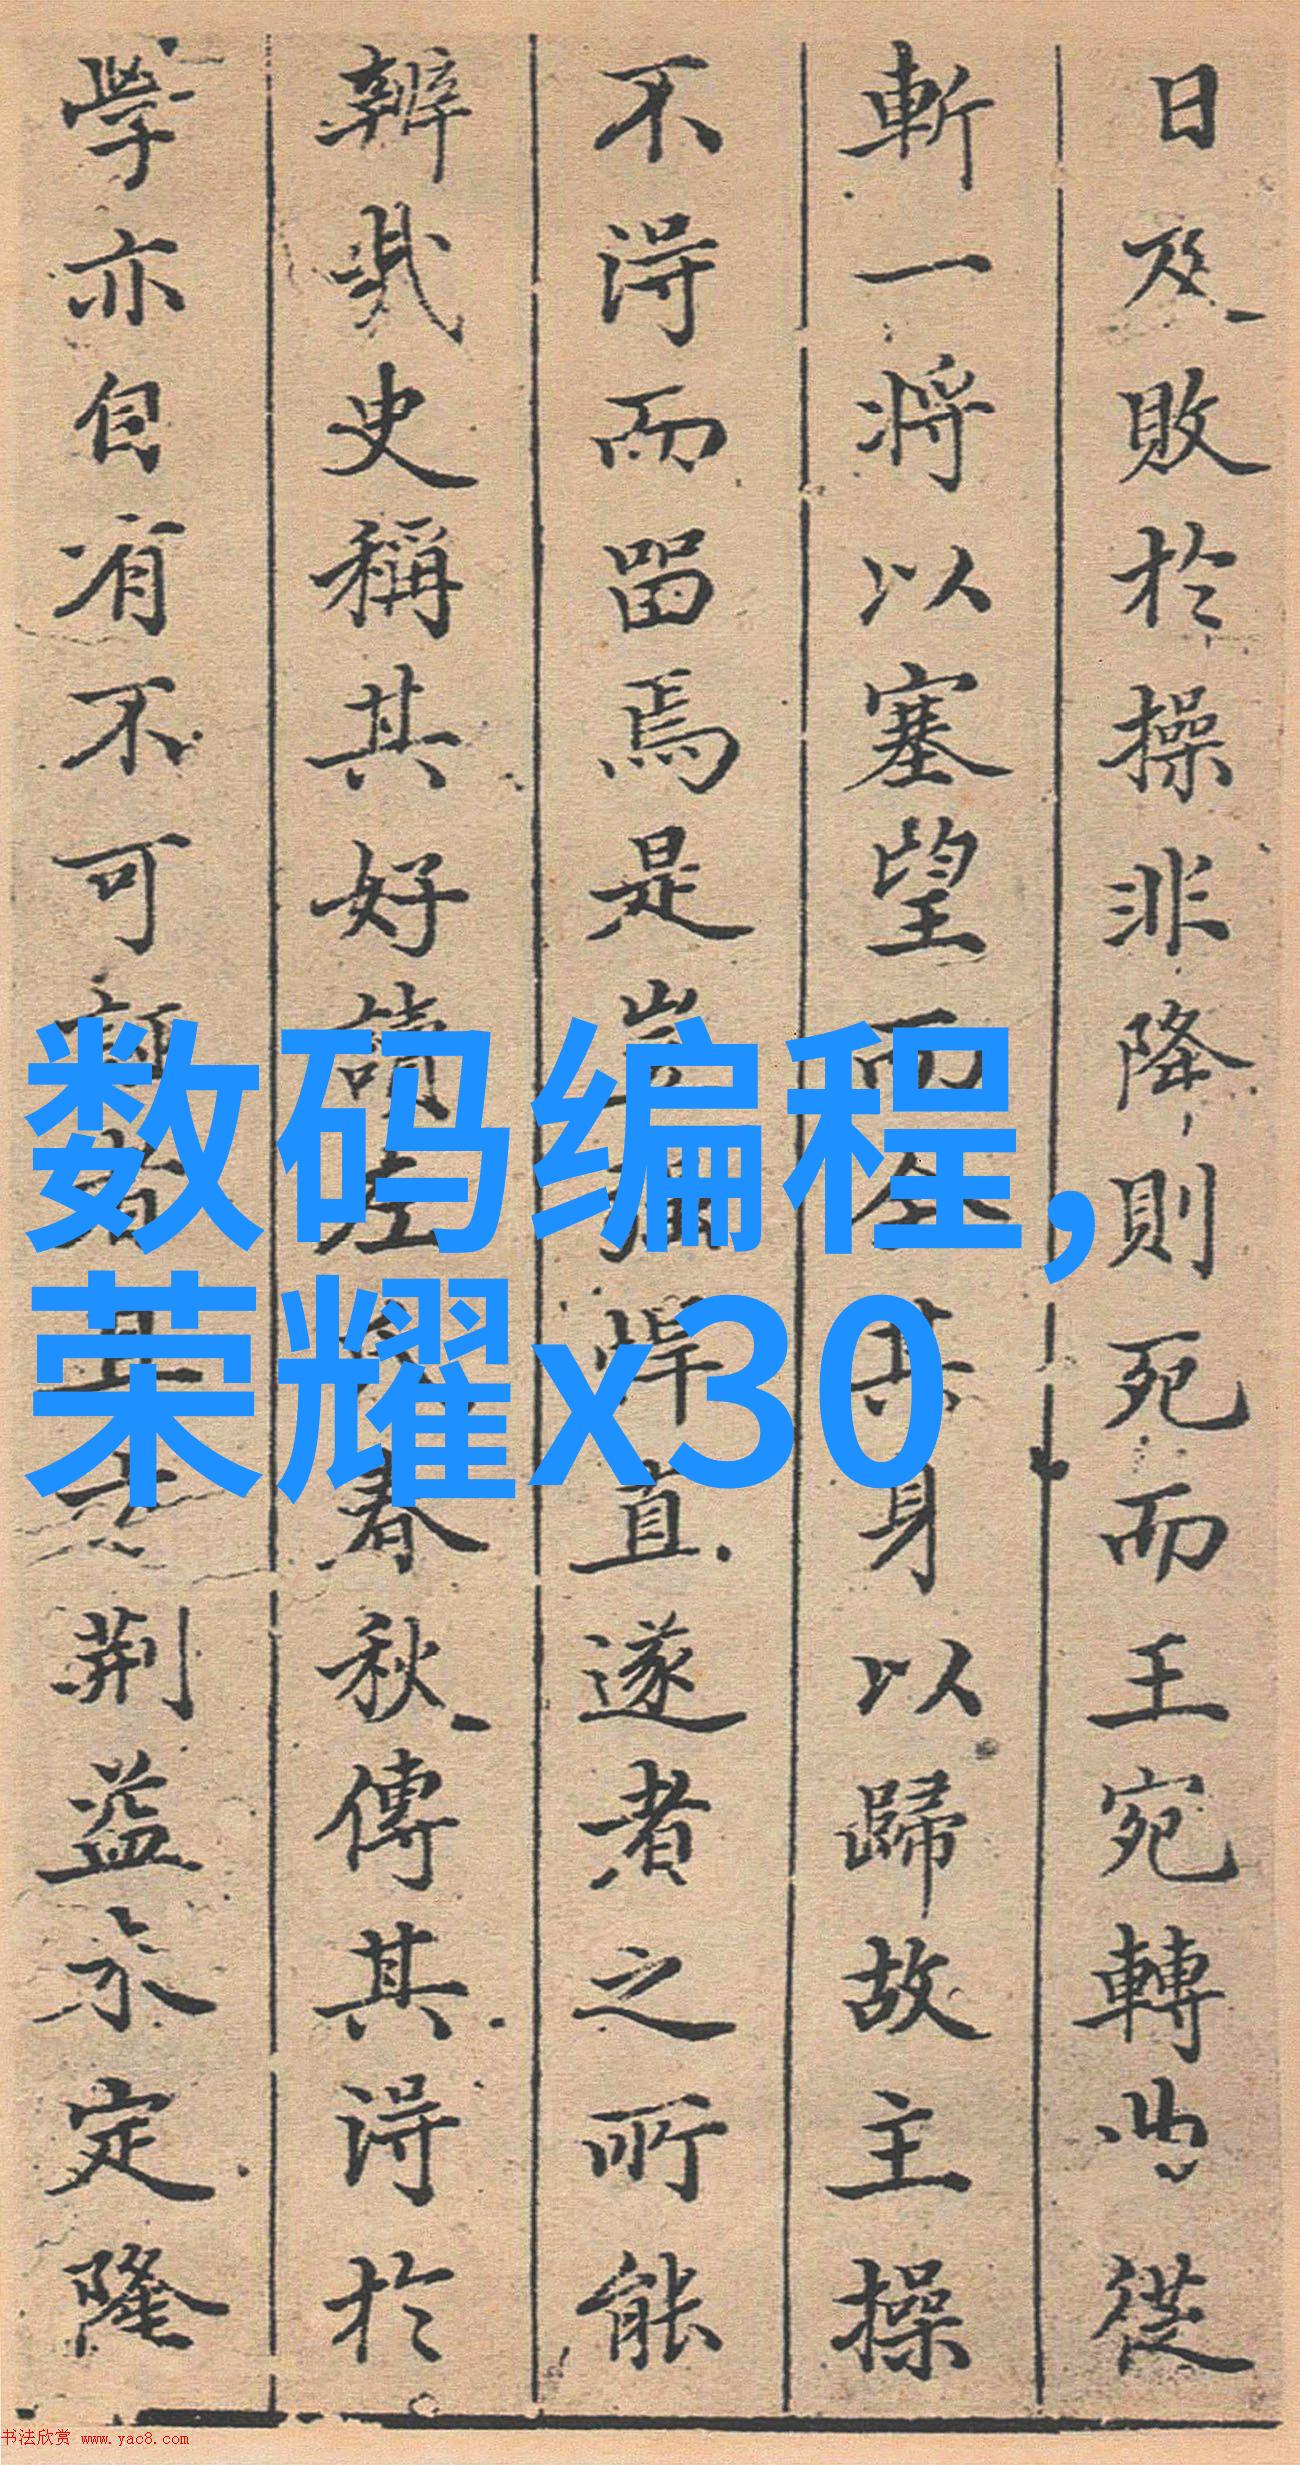 日及敗於操非降則死而王宛轉曲從
斬一將以塞望而全其身以歸故主操
不得而留焉是豈悍直遂者之所能
辨哉史稱其好讀左春秋傳其得於
學亦自有不可者且夫荆益未定隆
数码编程,
荣耀x30
书法欣赏 www.yac8.com